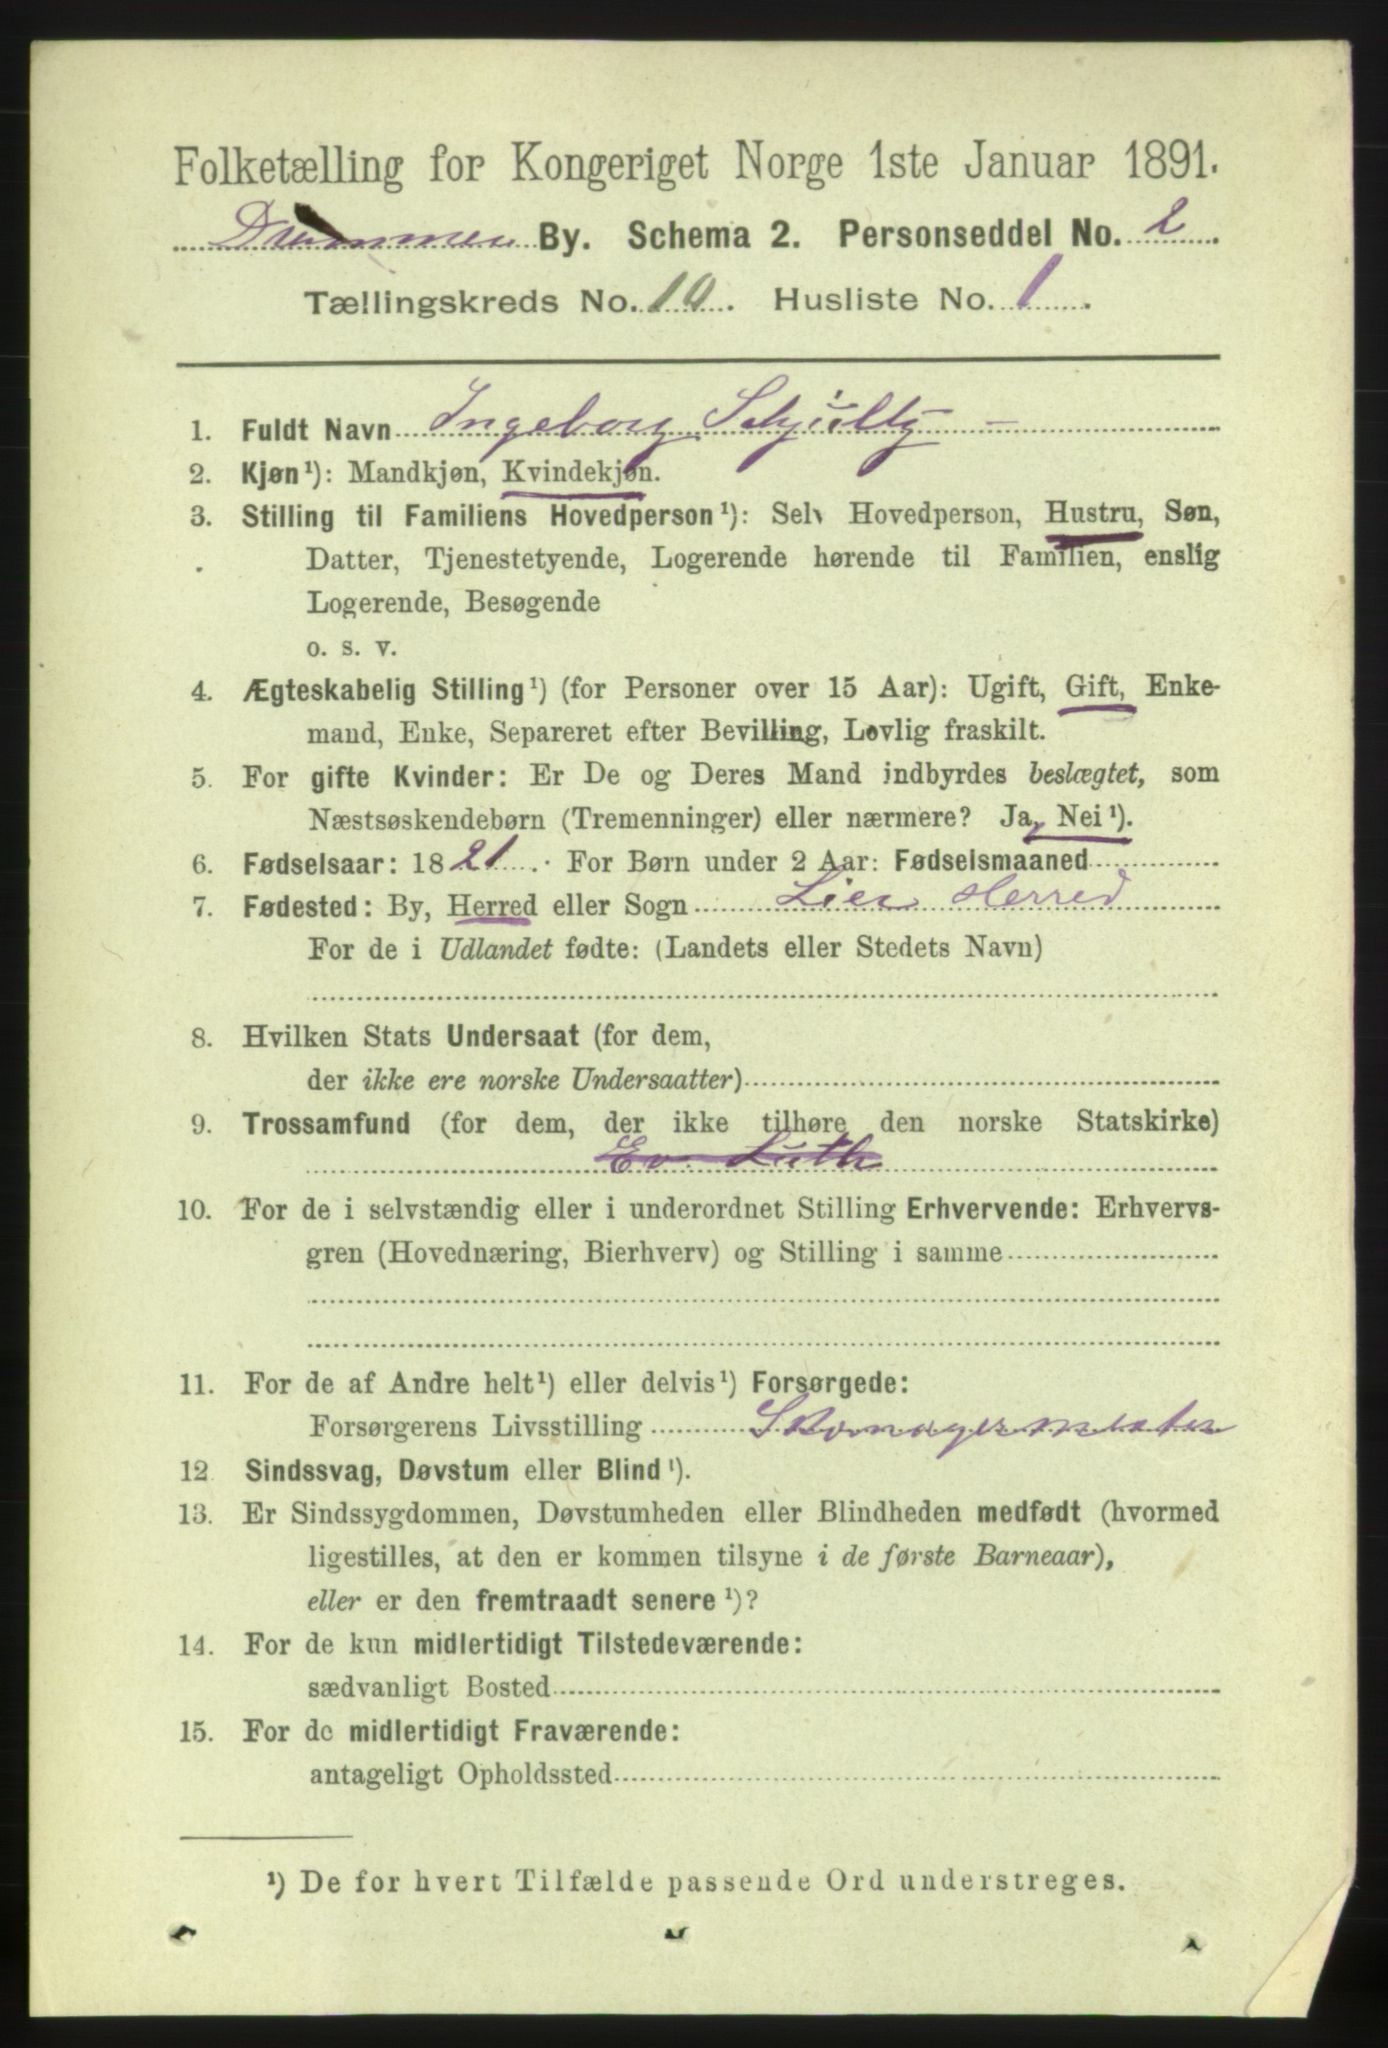 Folketælling for Kongeriget Norge 1ste Januar 1891.
Drammen By. Schema 2. Personseddel No. 2
Tællingskreds No. 10. Husliste No. 1.
1. Fuldt Navn Ingeborg Schjultz –
2. Kjøn¹): Mandkjøn, Kvindekjøn.
3. Stilling til Familiens Hovedperson¹): Selv Hovedperson, Hustru, Søn,
Datter, Tjenestetyende, Logerende hørende til Familien, enslig
Logerende, Besøgende
o. s. v.
4. Ægteskabelig Stilling¹) (for Personer over 15 Aar): Ugift, Gift, Enke-
mand, Enke, Separeret efter Bevilling, Lovlig fraskilt.
5. For gifte Kvinder: Er De og Deres Mand indbyrdes beslægtet, som
Næstsøskendebørn (Tremenninger) eller nærmere? Ja, Nei¹).
6. Fødselsaar: 1821. For Børn under 2 Aar: Fødselsmaaned
7. Fødested: By, Herred eller Sogn Lier Herred
For de i Udlandet fødte: (Landets eller Stedets Navn)
8. Hvilken Stats Undersaat (for dem,
der ikke ere norske Undersaatter)
9. Trossamfund (for dem, der ikke tilhøre den norske Statskirke)
Ev. Luth
10. For de i selvstændig eller i underordnet Stilling Erhvervende: Erhvervs-
gren (Hovednæring, Bierhverv) og Stilling i samme
11. For de af Andre helt¹) eller delvis¹) Forsørgede:
Forsørgerens Livsstilling Skomagermester
12 Sindssvag, Døvstum eller Blind¹).
13. Er Sindssygdommen, Døvstumheden eller Blindheden medfødt (hvormed
ligestilles, at den er kommen tilsyne i de første Barneaar),
eller er den fremtraadt senere¹)?
14. For de kun midlertidigt Tilstedeværende:
sædvanligt Bosted
15. For de midlertidigt Fraværende:
antageligt Opholdssted
¹) De for hvert Tilfælde passende Ord understreges.